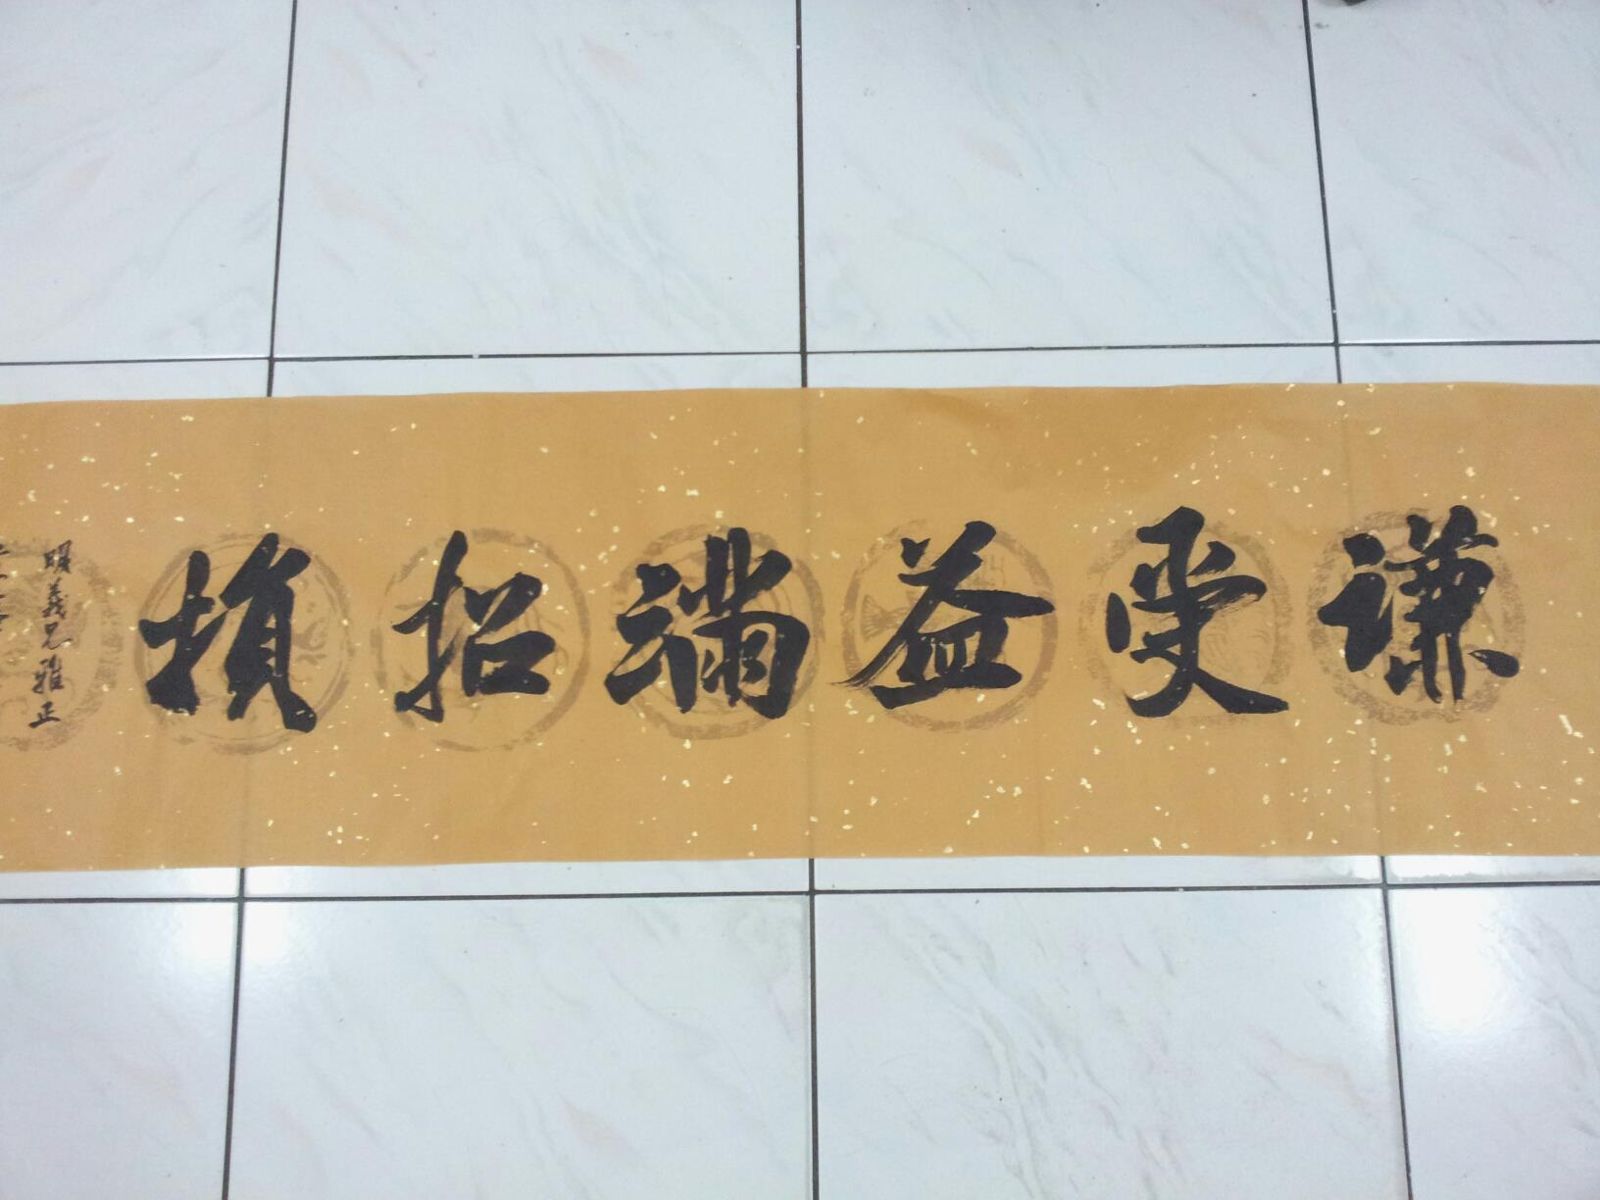 謙受益滿招損
明義兄雅正